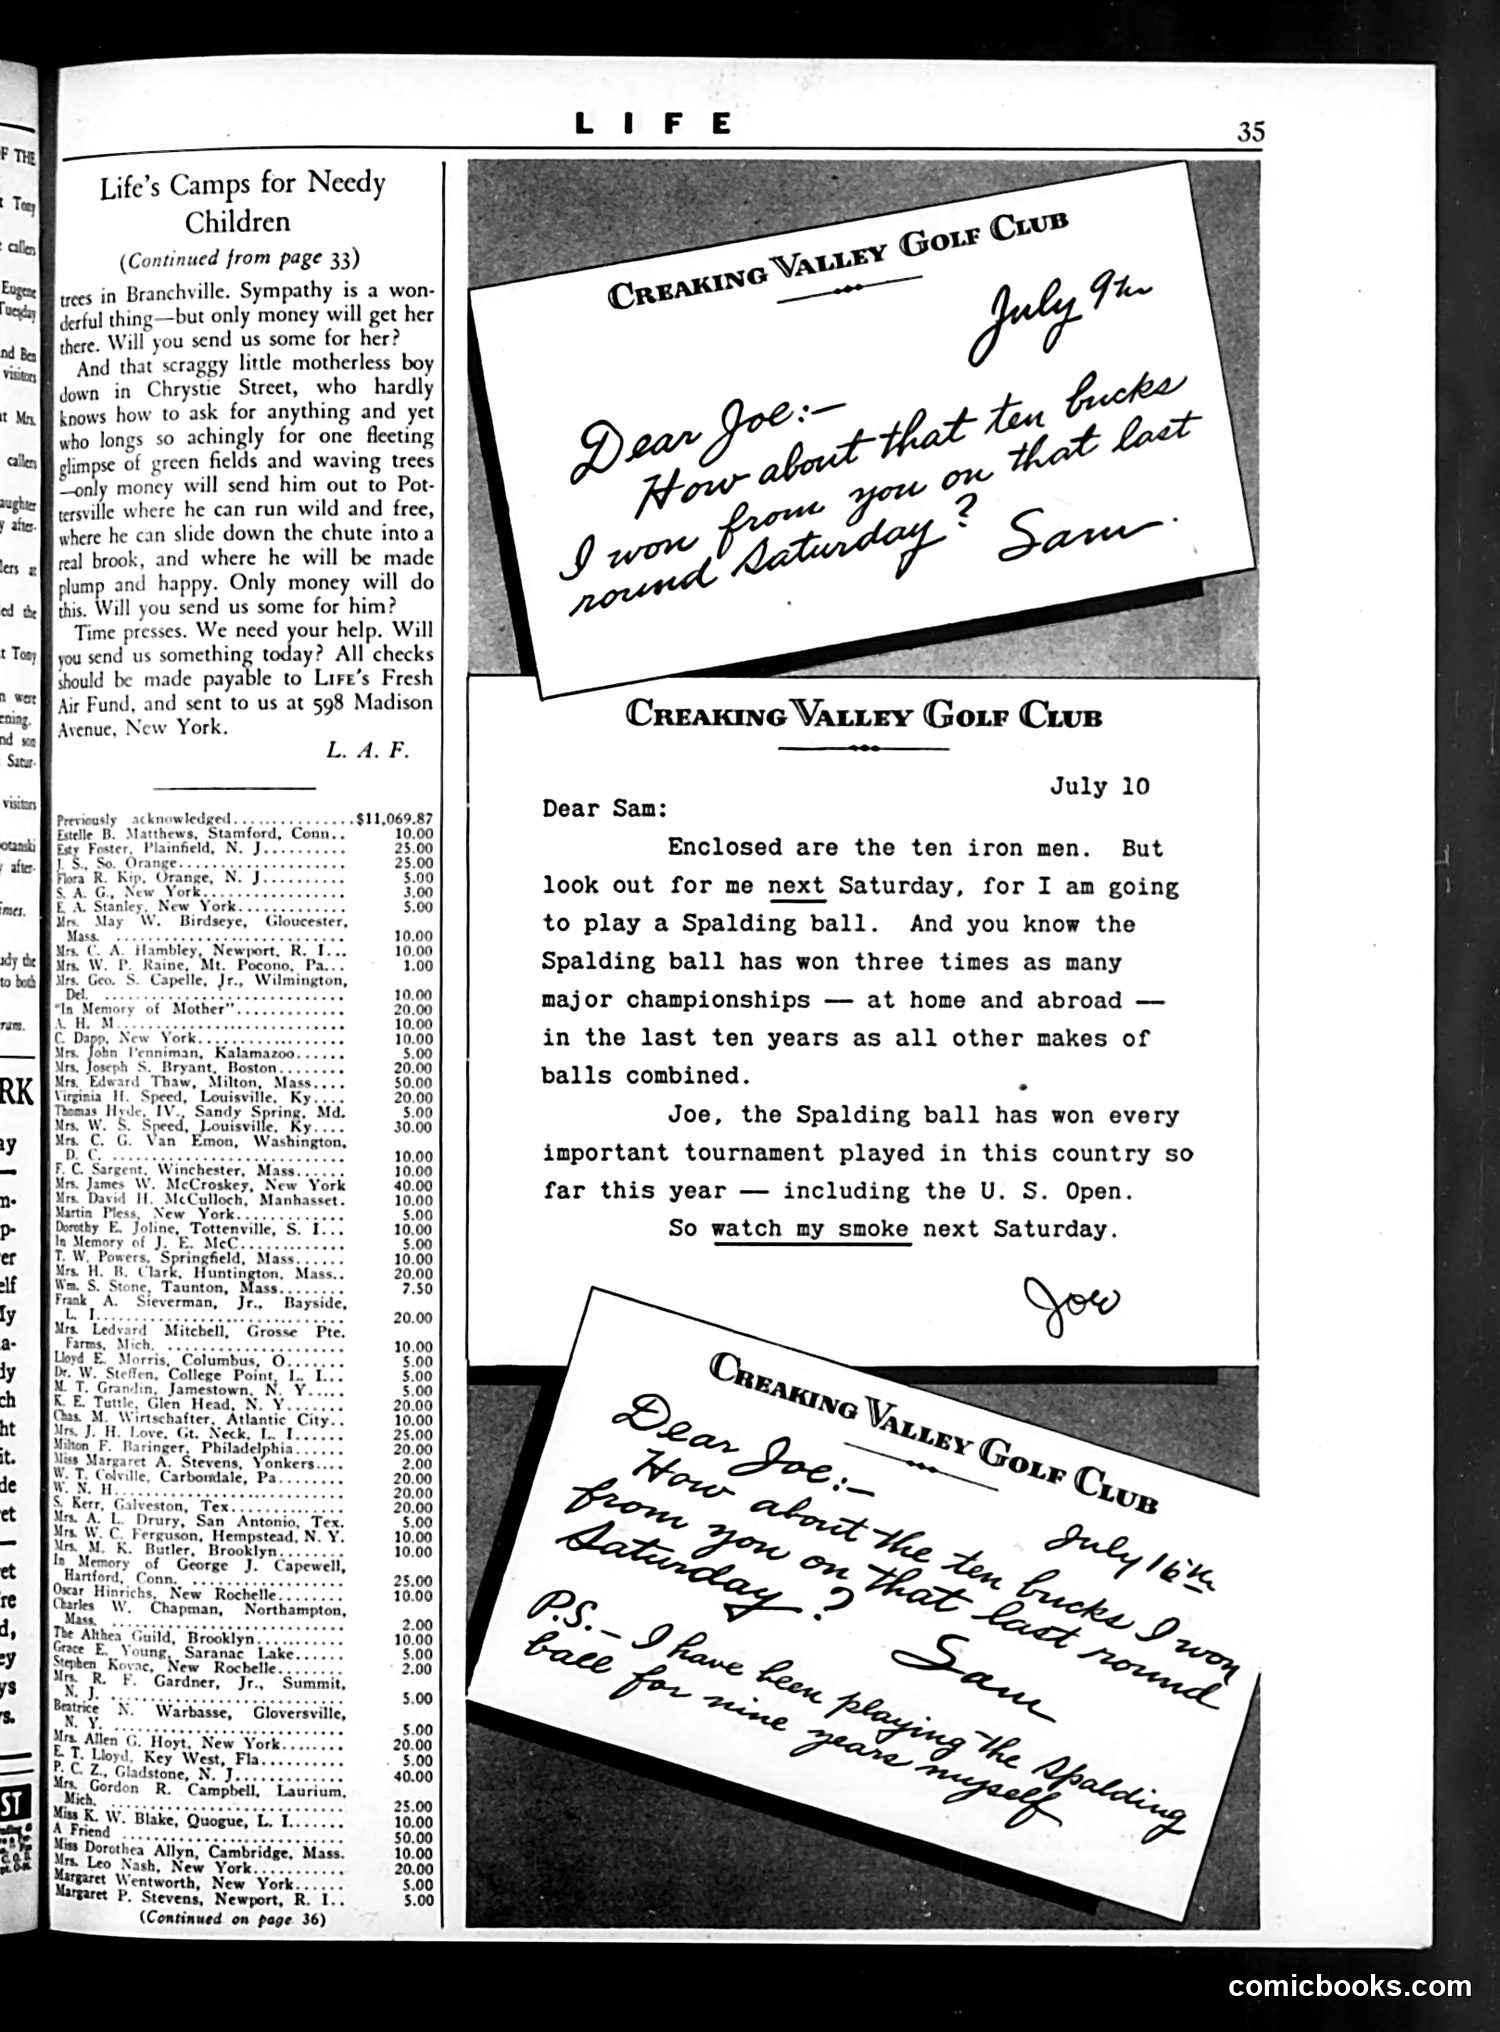 LIFE
35
Life's Camps for Needy
Children
(Continued from page 33)
trees in Branchville. Sympathy is a won-
derful thing—but only money will get her
there. Will you send us some for her?
And that scraggy little motherless boy
down in Chrystie Street, who hardly
knows how to ask for anything and yet
who longs so achingly for one fleeting
glimpse of green fields and waving trees
—only money will send him out to Pot-
tersville where he can run wild and free,
where he can slide down the chute into a
real brook, and where he will be made
plump and happy. Only money will do
this. Will you send us some for him?
Time presses. We need your help. Will
you send us something today? All checks
should be made payable to LIFE's Fresh
Air Fund, and sent to us at 598 Madison
Avenue, New York.
L. A. F.
Previously acknowledged...............$11,069.87
Estelle B. Matthews, Stamford, Conn.. 10.00
Esty Foster, Plainfield, N. J.......... 25.00
J. S., So. Orange.................... 25.00
Flora R. Kip, Orange, N. J.......... 5.00
S. A. G., New York................. 3.00
E. A. Stanley, New York............. 5.00
Mrs. May W. Birdseye, Gloucester,
Mass. ............................ 10.00
Mrs. C. A. Hambley, Newport, R. I... 10.00
Mrs. W. P. Raine, Mt. Pocono, Pa... 1.00
Mrs. Geo. S. Capelle, Jr., Wilmington,
Del. ............................. 10.00
"In Memory of Mother".............. 20.00
A. H. M............................ 10.00
C. Dapp, New York.................. 10.00
Mrs. John Penniman, Kalamazoo...... 5.00
Mrs. Joseph S. Bryant, Boston........ 20.00
Mrs. Edward Thaw, Milton, Mass.... 50.00
Virginia H. Speed, Louisville, Ky.... 20.00
Thomas Hyde, IV., Sandy Spring, Md. 5.00
Mrs. W. S. Speed, Louisville, Ky.... 30.00
Mrs. C. G. Van Emon, Washington,
D. C. ............................ 10.00
F. C. Sargent, Winchester, Mass...... 10.00
Mrs. James W. McCroskey, New York 40.00
Mrs. David H. McCulloch, Manhasset. 10.00
Martin Pless, New York.............. 5.00
Dorothy E. Joline, Tottenville, S. I... 10.00
In Memory of J. E. McC............. 5.00
T. W. Powers, Springfield, Mass...... 10.00
Mrs. H. B. Clark, Huntington, Mass.. 20.00
Wm. S. Stone, Taunton, Mass........ 7.50
Frank A. Sieverman, Jr., Bayside,
L. I.............................. 20.00
Mrs. Ledyard Mitchell, Grosse Pte.
Farms, Mich. ..................... 10.00
Lloyd E. Morris, Columbus, O....... 5.00
Dr. W. Steffen, College Point, L. I... 5.00
M. T. Grandin, Jamestown, N. Y..... 5.00
K. E. Tuttle, Glen Head, N. Y....... 20.00
Chas. M. Wirtschafter, Atlantic City.. 10.00
Mrs. J. H. Love, Gt. Neck, L. I...... 25.00
Milton F. Baringer, Philadelphia...... 20.00
Miss Margaret A. Stevens, Yonkers.... 2.00
W. T. Colville, Carbondale, Pa........ 20.00
W. N. H............................ 20.00
S. Kerr, Galveston, Tex.............. 20.00
Mrs. A. L. Drury, San Antonio, Tex. 5.00
Mrs. W. C. Ferguson, Hempstead, N. Y. 10.00
Mrs. M. K. Butler, Brooklyn........ 10.00
In Memory of George J. Capewell,
Hartford, Conn. .................. 25.00
Oscar Hinrichs, New Rochelle........ 10.00
Charles W. Chapman, Northampton,
Mass. ............................ 2.00
The Althea Guild, Brooklyn........... 10.00
Grace E. Young, Saranac Lake...... 5.00
Stephen Kovac, New Rochelle........ 2.00
Mrs. R. F. Gardner, Jr., Summit,
N. J. ............................ 5.00
Beatrice N. Warbasse, Gloversville,
N. Y. ............................ 5.00
Mrs. Allen G. Hoyt, New York........ 20.00
E. T. Lloyd, Key West, Fla.......... 5.00
P. C. Z., Gladstone, N. J............. 40.00
Mrs. Gordon R. Campbell, Laurium,
Mich. ............................ 25.00
Miss K. W. Blake, Quogue, L. I...... 10.00
A Friend ........................... 50.00
Miss Dorothea Allyn, Cambridge, Mass. 10.00
Mrs. Leo Nash, New York........... 20.00
Margaret Wentworth, New York...... 5.00
Margaret P. Stevens, Newport, R. I.. 5.00
(Continued on page 36)
CREAKING VALLEY GOLF CLUB
July 9th
Dear Joe:—
How about that ten bucks
I won from you on that last
round Saturday?
Sam.
CREAKING VALLEY GOLF CLUB
July 10
Dear Sam:
Enclosed are the ten iron men. But
look out for me next Saturday, for I am going
to play a Spalding ball. And you know the
Spalding ball has won three times as many
major championships — at home and abroad —
in the last ten years as all other makes of
balls combined.
Joe, the Spalding ball has won every
important tournament played in this country so
far this year — including the U. S. Open.
So watch my smoke next Saturday.
Joe
CREAKING VALLEY GOLF CLUB
July 16th
Dear Joe:—
How about the ten bucks I won
from you on that last round
Saturday?
Sam
P.S.— I have been playing the Spalding
ball for nine years myself
comicbooks.com